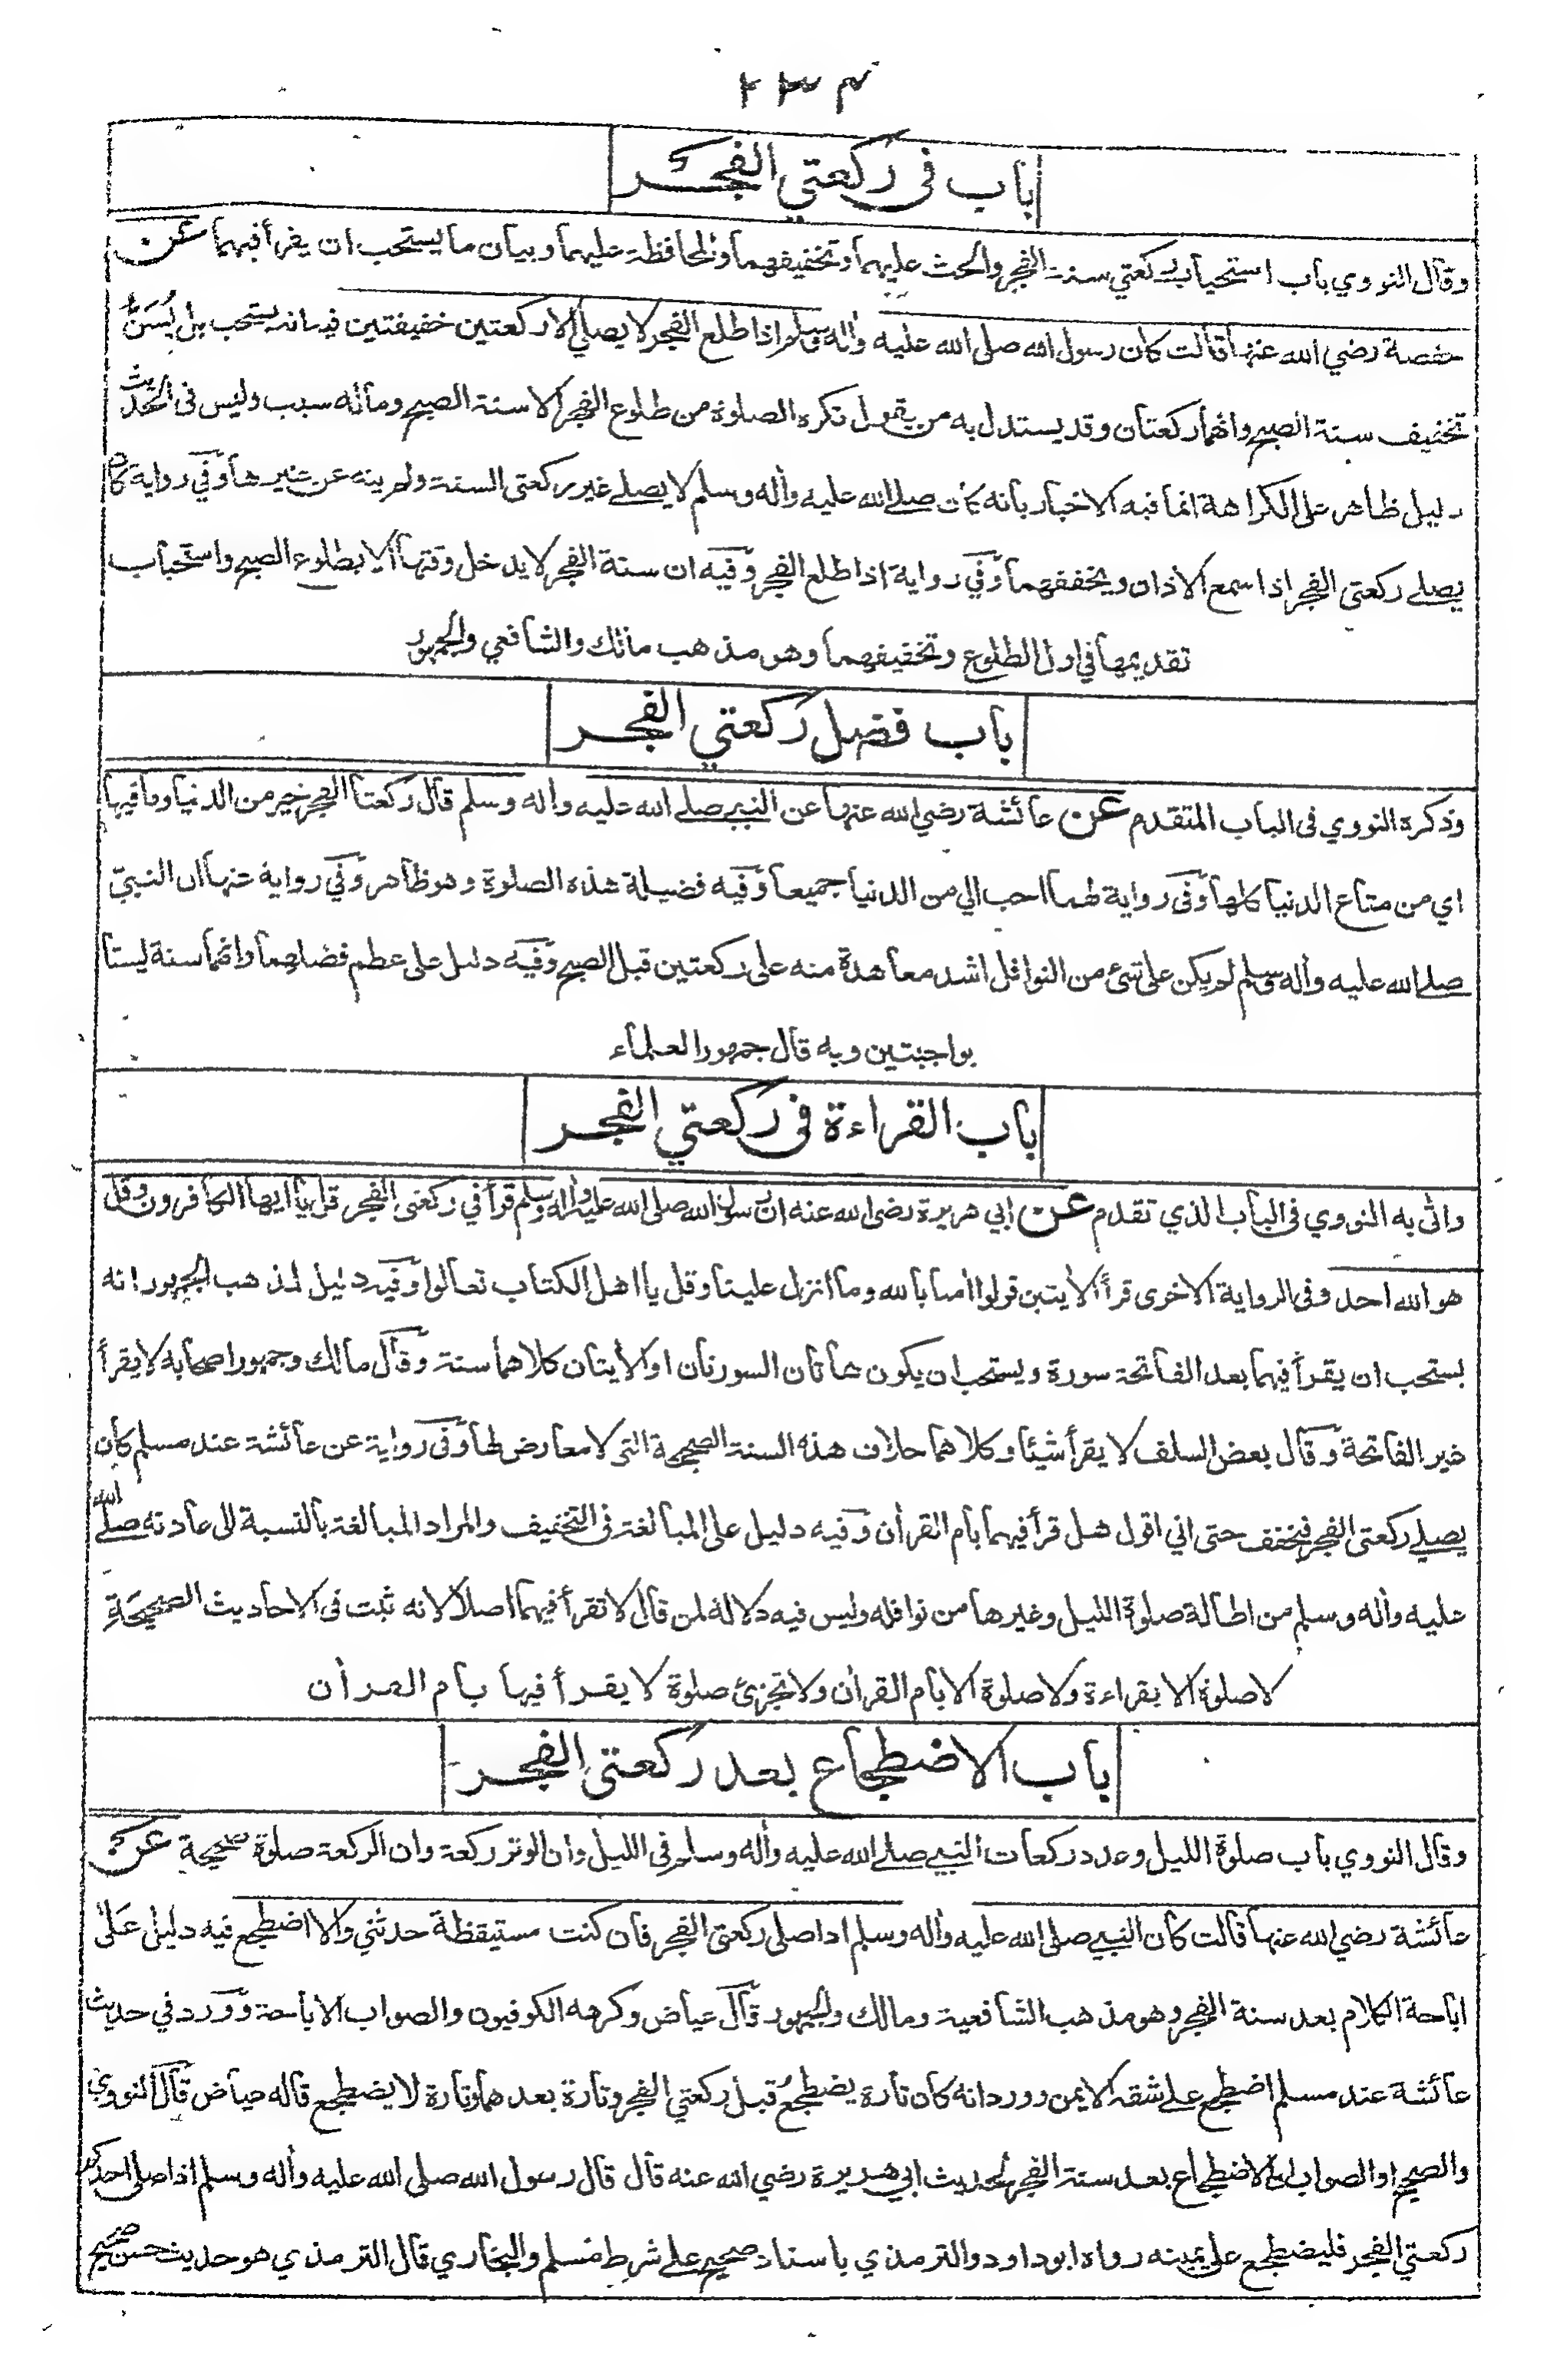 ٢٣٣
باب فى ركعتي الفجر
وقال النووي باب استحباب ركعتي سنة الفجر والحث عليهما وتخفيفهما والمحافظة عليهما وبيان ما يستحب ان يقرأ فيهما عن
حفصة رضي الله عنها قالت كان رسول الله صلى الله عليه وأله وسلم اذا طلع الفجر لا يصلي الا ركعتين خفيفتين فيه انه يستحب بل يُسَنُّ
تخفيف سنة الصبح وانهما ركعتان وقد يستدل به من يقول تكره الصلوة من طلوع الفجر الا سنة الصبح وماله سبب وليس فى الحديث
دليل ظاهر على الكراهة انما فيه الاخبار بانه كان صلى الله عليه وأله وسلم لا يصلى غير ركعتى السنة ولم ينه عن غيرها وفي رواية كان
يصلى ركعتى الفجر اذا سمع الاذان ويخففهما وفي رواية اذا طلع الفجر وفيه ان سنة الفجر لا يدخل وقتها الا بطلوع الصبح واستحباب
تقديمها في اول الطلوع وتخفيفهما وهو مذهب مالك والشافعي والجمهور
باب فضل ركعتي الفجر
وذكره النووي فى الباب المتقدم عن عائشة رضي الله عنها عن النبي صلى الله عليه وأله وسلم قال ركعتا الفجر خير من الدنيا وما فيها
اي من متاع الدنيا كلها وفى رواية لهما احب الي من الدنيا جميعا وفيه فضيلة هذه الصلوة وهو ظاهر وفي رواية عنها ان النبيّ
صلى الله عليه وأله وسلم لم يكن على شئ من النوافل اشد معاهدة منه على ركعتين قبل الصبح وفيه دليل على عظم فضلهما وانهما سنة ليستا
بواجبتين وبه قال جمهور العلماء
باب القراءة فى ركعتي الفجر
واتى به النووي فى الباب الذي تقدم عن ابي هريرة رضى الله عنه ان رسول الله صلى الله عليه وأله وسلم قرأ في ركعتى الفجر قل يا ايها الكافرون وقل
هو الله احد وفى الرواية الاخرى قرأ الأيتين قولوا أمنا بالله وما انزل علينا وقل يا اهل الكتاب تعالوا وفيه دليل لمذهب الجمهور انه
يستحب ان يقرأ فيهما بعد الفاتحة سورة ويستحب ان يكون هاتان السورتان او الأيتان كلاهما سنة وقال مالك وجمهور اصحابه لا يقرأ
غير الفاتحة وقال بعض السلف لا يقرأ شيئا وكلاهما خلاف هذه السنة الصحيحة التى لا معارض لها وفى رواية عن عائشة عند مسلم كان
يصلي ركعتى الفجر فيخفف حتى اني اقول هل قرأ فيهما بام القرأن وفيه دليل على المبالغة فى التخفيف والمراد المبالغة بالنسبة الى عادته صلى الله
عليه وأله وسلم من اطالة صلوة الليل وغيرها من نوافله وليس فيه دلالة لمن قال لا تقرأ فيهما اصلا لانه ثبت فى الاحاديث الصحيحة
لا صلوة الا بقراءة ولا صلوة الا بام القرأن ولا تجزئ صلوة لا يقرأ فيها بام القرأن
باب الاضطجاع بعد ركعتى الفجر
وقال النووي باب صلوة الليل وعدد ركعات النبي صلى الله عليه وأله وسلم فى الليل وان الوتر ركعة وان الركعة صلوة صحيحة عن
عائشة رضي الله عنها قالت كان النبي صلى الله عليه وأله وسلم اذا صلى ركعتى الفجر فان كنت مستيقظة حدثني والا اضطجع فيه دليل على
اباحة الكلام بعد سنة الفجر وهو مذهب الشافعية ومالك والجمهور قال عياض وكرهه الكوفيون والصواب الاباحة وورد في حديث
عائشة عند مسلم اضطجع على شقه الايمن وورد انه كان تارة يضطجع قبل ركعتي الفجر وتارة بعدهما وتارة لا يضطجع قاله عياض قال النووي
والصحيح او الصواب الاضطجاع بعد سنة الفجر لحديث ابي هريرة رضي الله عنه قال قال رسول الله صلى الله عليه وأله وسلم اذا صلى احدكم
ركعتي الفجر فليضطجع على يمينه رواه ابوداود والترمذي باسناد صحيح على شرط مسلم والبخاري قال الترمذي هو حديث حسن صحيح